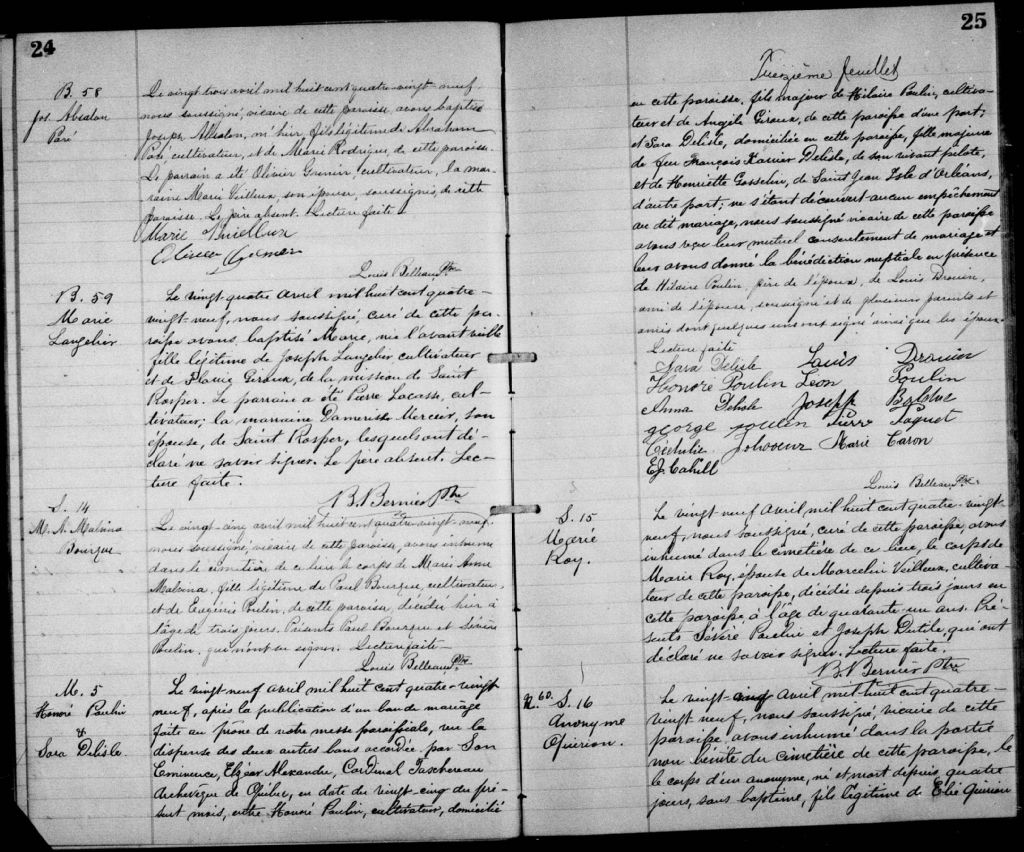 24
B. 58
Jos. Absalon
Paré
Le vingt trois avril mil huit cent quatre-vingt-neuf
nous soussigné, vicaire de cette paroisse avons baptisé
Joseph Absalon, né hier, fils légitime de Abraham
Paré, cultivateur, et de Marie Rodrigue, de cette paroisse.
Le parrain a été Olivier Grenier cultivateur, la mar-
raine Marie Veilleux son épouse, soussignés, de cette
paroisse. Le père absent. Lecture faite.
Marie
Louis Belleau Ptre
B. 59
Marie
Langelier
Le vingt-quatre avril mil huit cent quatre-
vingt-neuf, nous soussigné, curé de cette pa-
roisse avons baptisé Marie, née l'avant veille
fille légitime de Joseph Langelier cultivateur
et de Flavie Giroux, de la mission de Saint
Rosper. Le parrain a été Pierre Lacasse, cul-
tivateur; la marraine Damerise Mercier, son
épouse, de Saint Rosper, lesquels ont dé-
claré ne savoir signer. Le père absent. Lec-
ture faite.
B. Bernier Ptre
S. 14
M. A. Malvina
Bourque
Le vingt-cinq avril mil huit cent quatre-vingt-neuf
nous soussigné, vicaire de cette paroisse, avons inhumé
dans le cimetière de ce lieu le corps de Marie Anne
Malvina, fille légitime de Paul Bourque, cultivateur
et de Eugénie Poulin, de cette paroisse, décédée hier à
l'âge de trois jours. Présents Paul Bourque et Sévère
Poulin, qui n'ont su signer. Lecture faite
Louis Belleau Ptre
M. 5
Honoré Poulin
&
Sara Delisle
Le vingt-neuf avril mil huit cent quatre-vingt
neuf, après la publication d'un ban de mariage
faite au prône de notre messe paroissiale, vu la
dispense des deux autres bans accordée par Son
Eminence, Elzéar Alexandre, Cardinal Taschereau
Archevêque de Québec, en date du vingt-cinq du pré-
sent mois, entre Honoré Poulin, cultivateur, domicilié
25
Treizième feuillet
en cette paroisse, fils majeur de Hilaire Poulin, cultiva-
teur et de Angèle Giroux, de cette paroisse d'une part;
et Sara Delisle, domiciliée en cette paroisse, fille majeure
de feu François Xavier Delisle, de son vivant pilote,
et de Henriette Gosselin, de Saint Jean Isle d'Orléans,
d'autre part; ne s'étant découvert aucun empêchement
au dit mariage, nous soussigné vicaire de cette paroisse
avons reçu leur mutuel consentement de mariage et
leur avons donné la bénédiction nuptiale en présence
de Hilaire Poulin, père de l'époux, de Louis Drouin,
ami de l'épouse, soussigné et de plusieurs parents et
amis dont quelques uns ont signé ainsi que les époux.
Lecture faite
Sara Delisle Louis Drouin
Honoré Poulin Leon Poulin
Anna Delisle Joseph
george poulin Pierre Paquet
Marie Caron
EJ Cahill
Louis Belleau Ptre
S. 15
Marie
Roy.
Le vingt-neuf avril mil huit cent quatre-vingt-
neuf, nous soussigné, curé de cette paroisse, avons
inhumé dans le cimetière de ce lieu, le corps de
Marie Roy, épouse de Marcelin Veilleux, cultiva-
teur de cette paroisse, décédée depuis trois jours en
cette paroisse, à l'âge de quarante-un ans. Pré-
sents Sévère Poulin et Joseph Dutile, qui ont
déclaré ne savoir signer. Lecture faite.
B. Bernier Ptre
N. 60. S. 16
Anonyme
Quirion.
Le vingt-cinq avril mil huit cent quatre-
vingt neuf, nous soussigné, vicaire de cette
paroisse, avons inhumé dans la partie
non bénite du cimetière de cette paroisse, le
le corps d'un anonyme, né et mort depuis quatre
jours, sans baptême, fils légitime de Elie Quirion